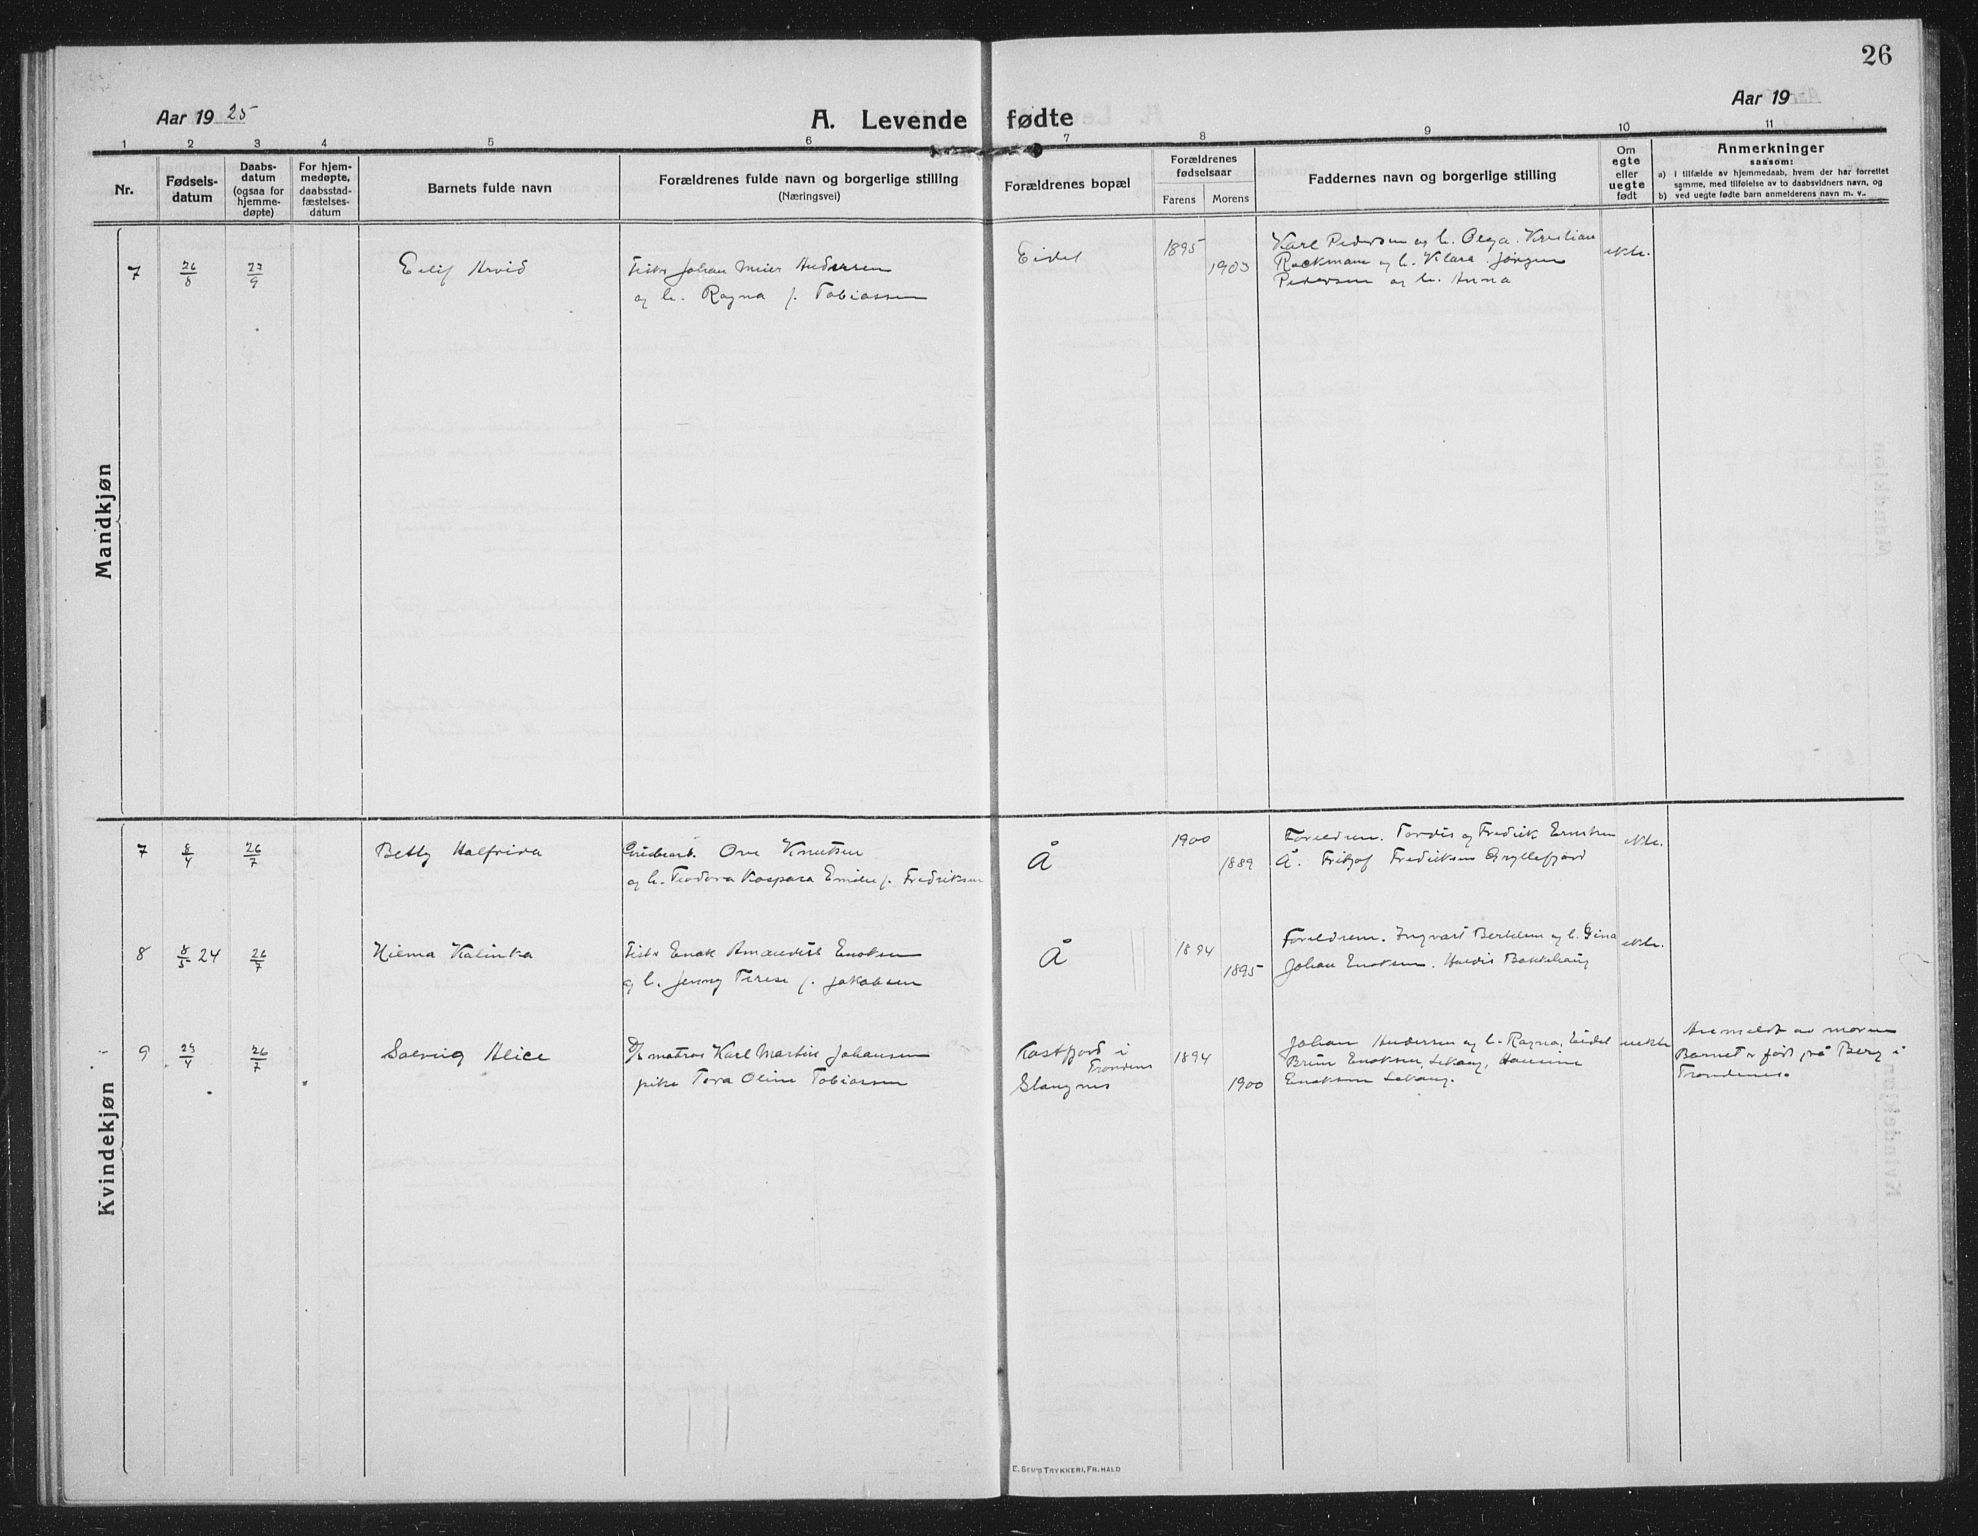 26
Aar 1925
A. Levende fødte
Aar 19
1 2 3 4 5 6 7 8 9 10 11
Nr.
Fødsels-
datum
Daabs-
datum
(ogsaa for
hjemme-
døpte)
For hjem-
medøpte,
daabsstad-
fæstelses-
datum
Barnets fulde navn
Forældrenes fulde navn og borgerlige stilling
(Næringsvei)
Forældrenes bopæl
Forældrenes
fødselsaar
Farens Morens
Faddernes navn og borgerlige stilling
Om
egte
eller
uegte
født
Anmerkninger
saasom:
a) I tilfælde av hjemmedaab, hvem der har forrettet
samme, med tilføielse av to daabsvidners navn, og
b) ved uegte fødte barn anmelderens navn m. v..
Mandkjøn
7 26/8 27/9 Eilif Arvid
Fisk. Johan Meier Andersen
og h. Ragna f. Tobiassen
Eidet
1895
1903
Karl Pedersen og h. Olga. Kristian
Rockmann og h. Klara. Jørgen
Pedersen og h. Anna
ekte.
Kvindekjøn
7 8/4 26/7 Betty Halfrida
Ove Knutsen
og h. Teodora Kaspara Emilie f. Fredriksen
Å
1900
1889
Foreldrene. Tordis og Fredrik Erntsen
Å. Fritjof Fredriksen Gryllefjord
ekte.
8 8/5 24 26/7 Hilma Kalinka
Fisk. Enok Amandus Enoksen
og h. Jenny Terese f. Jakobsen
Å
1894
1895
Foreldrene. Ingvart Bertelsen og h. Gina
Johan Enoksen. Haldis Bakkehaug
ekte.
9 29/4 26/7 Solveig Alice
matros Karl Martin Johansen
pike Tora Oline Tobiassen
Kastfjord i
Trondenes
Stangnes
1894
1900
Johan Andersen og h. Ragna, Eidet
Brun Enoksen, Lekang, Hansine
Enoksen Lekang.
uekte
Anmeldt av moren
Barnet er født på Berg i
Trondenes.
E. Sem's Trykkeri, Fr.hald